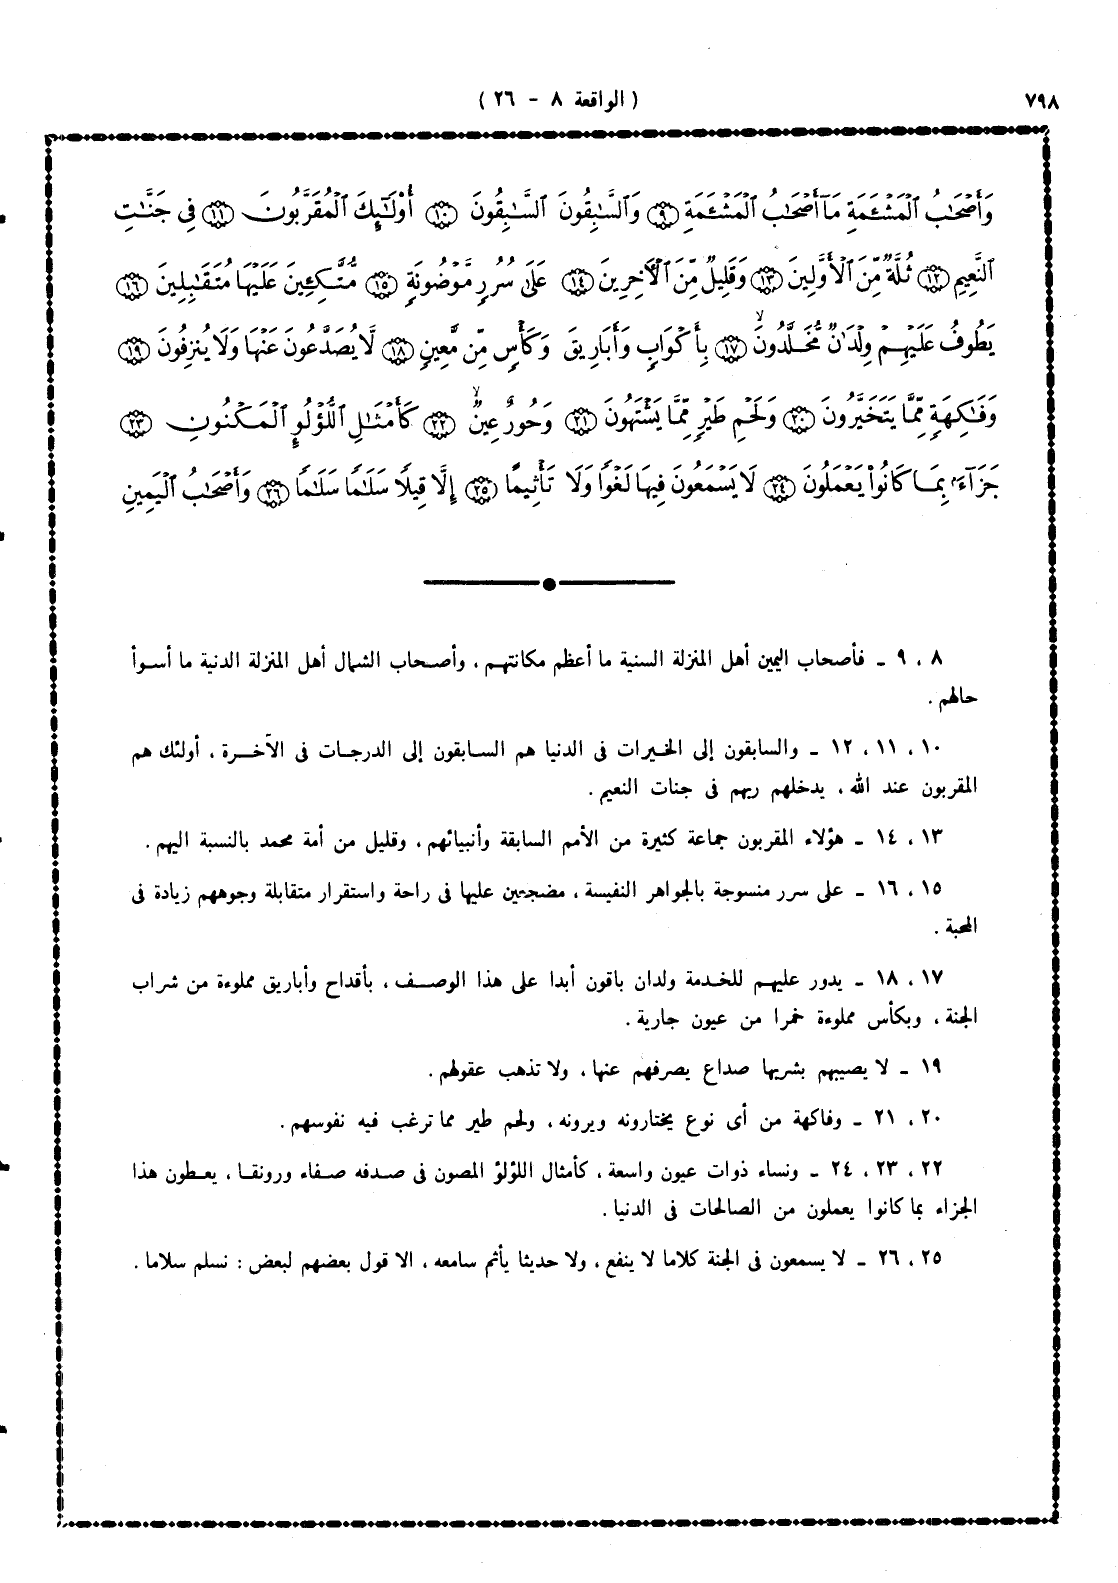 ٧٩٨
( الواقعة ٨ - ٢٦ )
وَأَصْحَٰبُ ٱلْمَشْـَٔمَةِ مَآ أَصْحَٰبُ ٱلْمَشْـَٔمَةِ ۝٩ وَٱلسَّٰبِقُونَ ٱلسَّٰبِقُونَ ۝١٠ أُو۟لَٰٓئِكَ ٱلْمُقَرَّبُونَ ۝١١ فِى جَنَّٰتِ
ٱلنَّعِيمِ ۝١٢ ثُلَّةٌ مِّنَ ٱلْأَوَّلِينَ ۝١٣ وَقَلِيلٌ مِّنَ ٱلْءَاخِرِينَ ۝١٤ عَلَىٰ سُرُرٍ مَّوْضُونَةٍ ۝١٥ مُّتَّكِـِٔينَ عَلَيْهَا مُتَقَٰبِلِينَ ۝١٦
يَطُوفُ عَلَيْهِمْ وِلْدَٰنٌ مُّخَلَّدُونَ ۝١٧ بِأَكْوَابٍ وَأَبَارِيقَ وَكَأْسٍ مِّن مَّعِينٍ ۝١٨ لَّا يُصَدَّعُونَ عَنْهَا وَلَا يُنزِفُونَ ۝١٩
وَفَٰكِهَةٍ مِّمَّا يَتَخَيَّرُونَ ۝٢٠ وَلَحْمِ طَيْرٍ مِّمَّا يَشْتَهُونَ ۝٢١ وَحُورٌ عِينٌ ۝٢٢ كَأَمْثَٰلِ ٱللُّؤْلُؤِ ٱلْمَكْنُونِ ۝٢٣
جَزَآءًۢ بِمَا كَانُوا۟ يَعْمَلُونَ ۝٢٤ لَا يَسْمَعُونَ فِيهَا لَغْوًا وَلَا تَأْثِيمًا ۝٢٥ إِلَّا قِيلًا سَلَٰمًا سَلَٰمًا ۝٢٦ وَأَصْحَٰبُ ٱلْيَمِينِ
٨ ، ٩ ـ فأصحاب اليمين أهل المنزلة السنية ما أعظم مكانتهم ، وأصحاب الشمال أهل المنزلة الدنية ما أسوأ
حالهم .
١٠ ، ١١ ، ١٢ ـ والسابقون إلى الخيرات فى الدنيا هم السابقون إلى الدرجات فى الآخرة ، أولئك هم
المقربون عند الله ، يدخلهم ربهم فى جنات النعيم .
١٣ ، ١٤ ـ هؤلاء المقربون جماعة كثيرة من الأمم السابقة وأنبيائهم ، وقليل من أمة محمد بالنسبة اليهم .
١٥ ، ١٦ ـ على سرر منسوجة بالجواهر النفيسة ، مضجعين عليها فى راحة واستقرار متقابلة وجوههم زيادة فى
المحبة .
١٧ ، ١٨ ـ يدور عليهم للخدمة ولدان باقون أبدا على هذا الوصف ، بأقداح وأباريق مملوءة من شراب
الجنة ، وبكأس مملوءة خمرا من عيون جارية .
١٩ ـ لا يصيبهم بشربها صداع يصرفهم عنها ، ولا تذهب عقولهم .
٢٠ ، ٢١ ـ وفاكهة من أى نوع يختارونه ويرونه ، ولحم طير مما ترغب فيه نفوسهم .
٢٢ ، ٢٣ ، ٢٤ ـ ونساء ذوات عيون واسعة ، كأمثال اللؤلؤ المصون فى صدفه صفاء ورونقا ، يعطون هذا
الجزاء بما كانوا يعملون من الصالحات فى الدنيا .
٢٥ ، ٢٦ ـ لا يسمعون فى الجنة كلاما لا ينفع ، ولا حديثا يأثم سامعه ، الا قول بعضهم لبعض : نسلم سلاما .